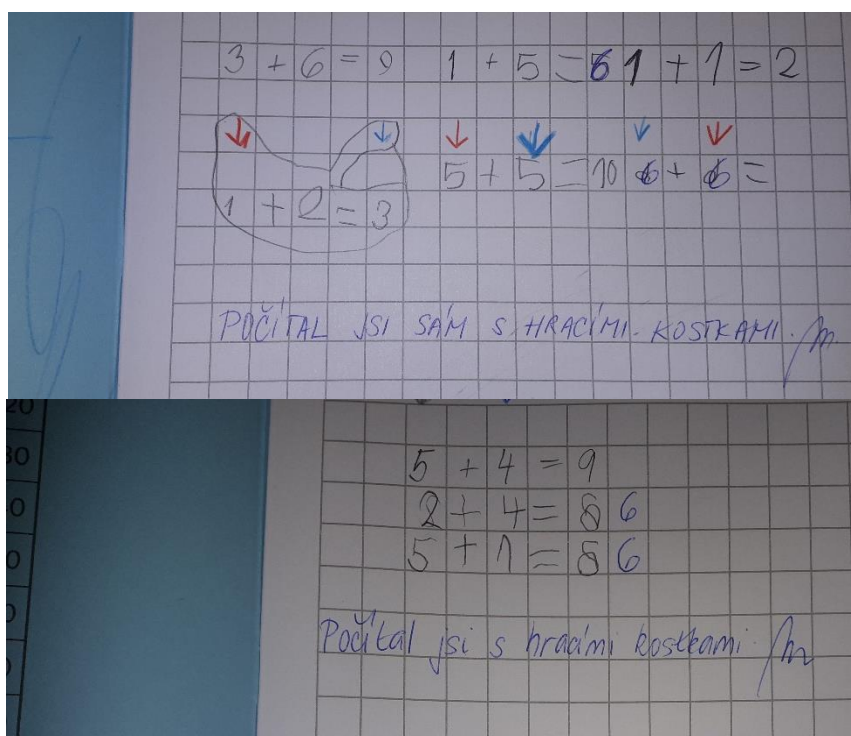 3 + 6 = 9 1 + 5 = 6 1 + 1 = 2
5 + 5 = 10 6 + 6 =
1 + 2 = 3
POČÍTAL JSI SÁM S HRACÍMI KOSTKAMI.
20
30
5 + 4 = 9
2 + 4 = 8 6
5 + 1 = 8 6
Počítal jsi s hracími kostkami.